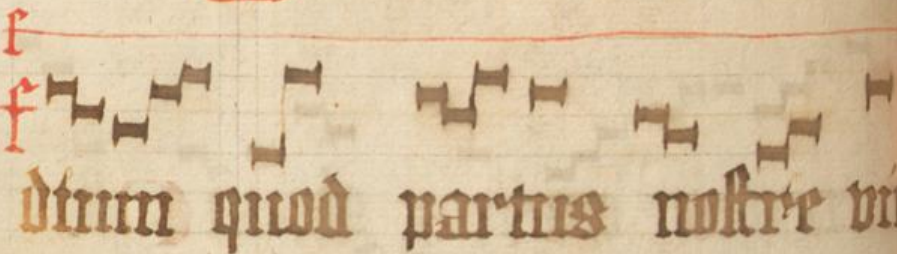 dium quod partus nostre vir